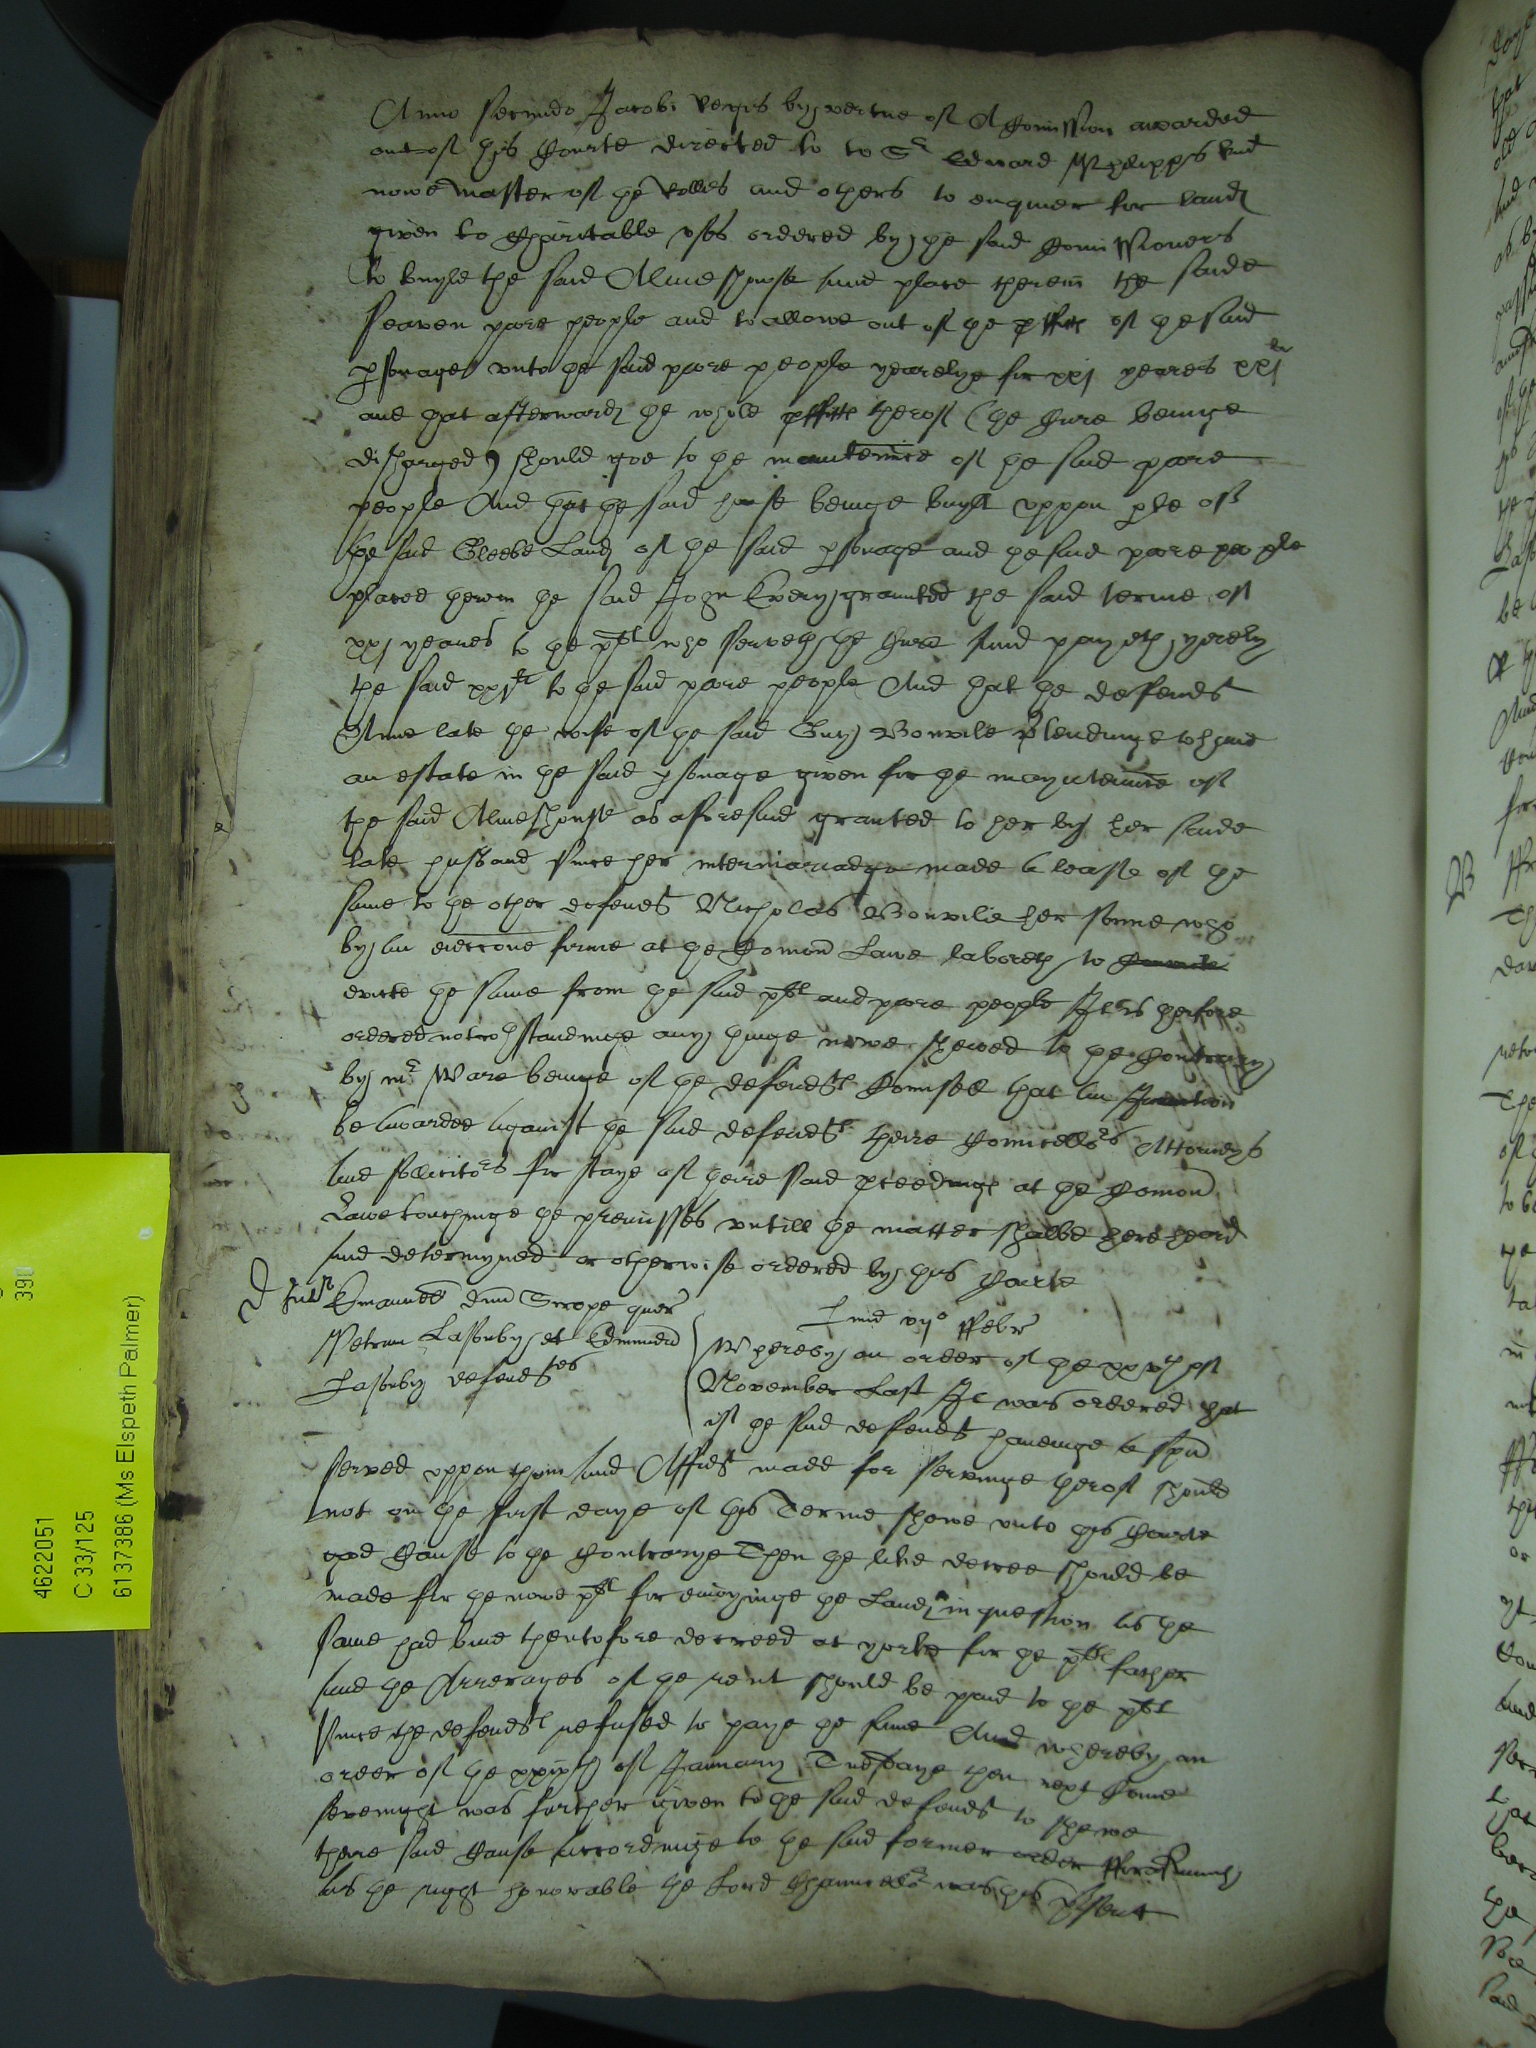 Anno secundo Jacobi Regis by vertue of A Comission awarded
out of this Courte directed to to Sr Edward Phelipps knt
nowe Master of the Rolles and others to enquier for lands
given to Charitable uses ordered by the said Comissioners
to buyld the said Almeshouse and place therein the saide
seaven poore people and to allowe out of the pffitts of the said
psonage unto the said poore people yearelye for xxj yeares xxjli
and that afterwards the whole pffitts therof (the Cure beinge
discharged) should goe to the mantenñce of the said poore
people And that the said house beinge buylt uppon pte of
the said Gleebe Lands of the said psonage and the said poore people
placed therein the said John Every graunted the said terme of
xxj yeares to the plt who serveth the Cure And payeth yerely
the said xxjli to the said poore people And that the defendt
Anne late the wife of the said Guy Bonvile ptendinge to have
an estate in the said psonage given for the mayntennce of
the said Almeshouse as aforesaid granted to her by her saide
late husband since her intermariadge made a lease of the
same to the other defendt Nicholas Bonvile her sonne who
by an eieccone firme at the Comon Lawe laboreth to
evicte the same from the said plt and poore people It is therfore
ordered notwthstandinge any thinge nowe shewed to the Contrary
by mr Ware beinge of the defendts Counsell that an Iniunction
be awarded against the said defendts theire Councellors Attorneys
and sollicitors for staye of theire said pceedings at the Comon
Lawe touchinge the premisses untill the matter shalbe here heard
and determyned or otherwise ordered by this Courte
D
Emanuel dnus Scrope quer
Petrum Lasonby et Edmund
Lasonby defendtes
Lune vijo ffebr
Whereby an order of the xxvth of
November Last It was ordered that
if the said defendts haveinge a spa
served uppon them and Affidt made for servinge therof should
not on the first daye of this Terme shewe unto this Courte
good Cause to the Contrarye Then the like decree should be
made for the nowe plt for enioyinge the Lands in question as the
same had bine theretofore decreed at yorke for the plts father
and the Arrerages of the rent should be paid to the plt
since the defendts refused to paye the same And whereby an
order of the xxixth of January Tuesdaye then next Come
sevenight was further given to the said defendts to shewe
theire said Cause accordinge to the said former order fforasmuch
as the right honorable the Lord Chauncellor was this psent
4622051
C 33/125
6137386 (Ms Elspeth Palmer)
390